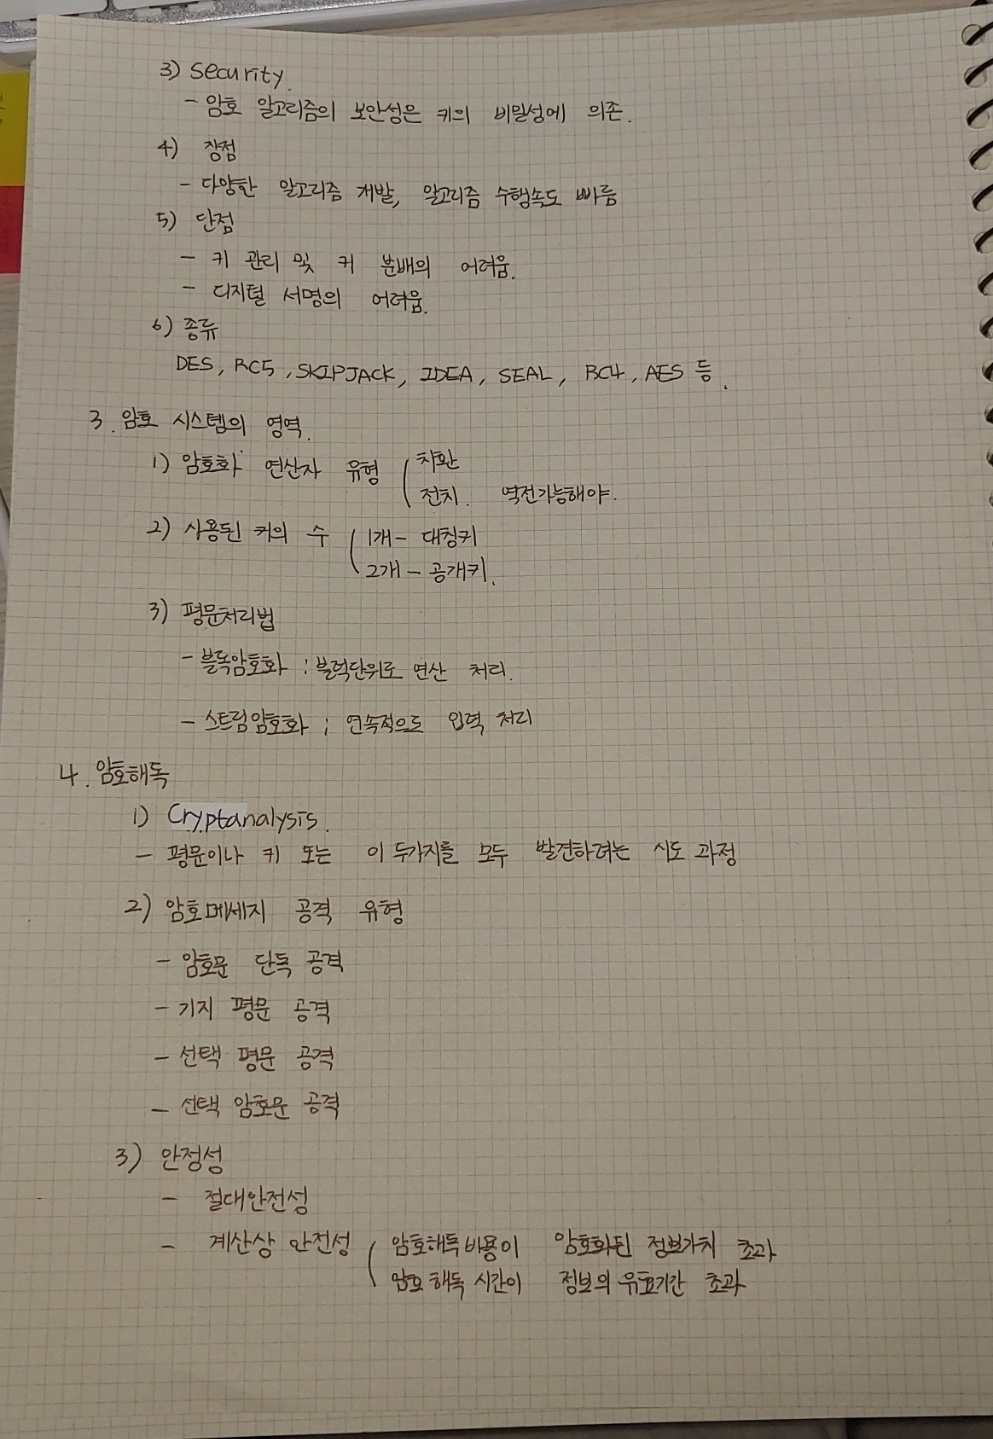 3) Security.
- 암호 알고리즘의 보안성은 키의 비밀성에 의존.
4) 장점
- 다양한 알고리즘 개발, 알고리즘 수행속도 빠름
5) 단점
- 키 관리 및 키 분배의 어려움.
- 디지털 서명의 어려움.
6) 종류
DES, RC5, SKIPJACK, IDEA, SEAL, RC4, AES 등.
3. 암호 시스템의 영역.
1) 암호화 연산자 유형 ( 치환
전치. 역전가능해야.
2) 사용된 키의 수 ( 1개 - 대칭키
2개 - 공개키.
3) 평문처리법
- 블록암호화 : 블럭단위로 연산 처리.
- 스트림암호화 ; 연속적으로 입력 처리
4. 암호해독
1) Cryptanalysis.
- 평문이나 키 또는 이 두가지를 모두 발견하려는 시도 과정
2) 암호메세지 공격 유형
- 암호문 단독 공격
- 기지 평문 공격
- 선택 평문 공격
- 선택 암호문 공격
3) 안정성
- 절대안전성
- 계산상 안전성 ( 암호해독비용이 암호화된 정보가치 초과
암호 해독 시간이 정보의 유효기간 초과